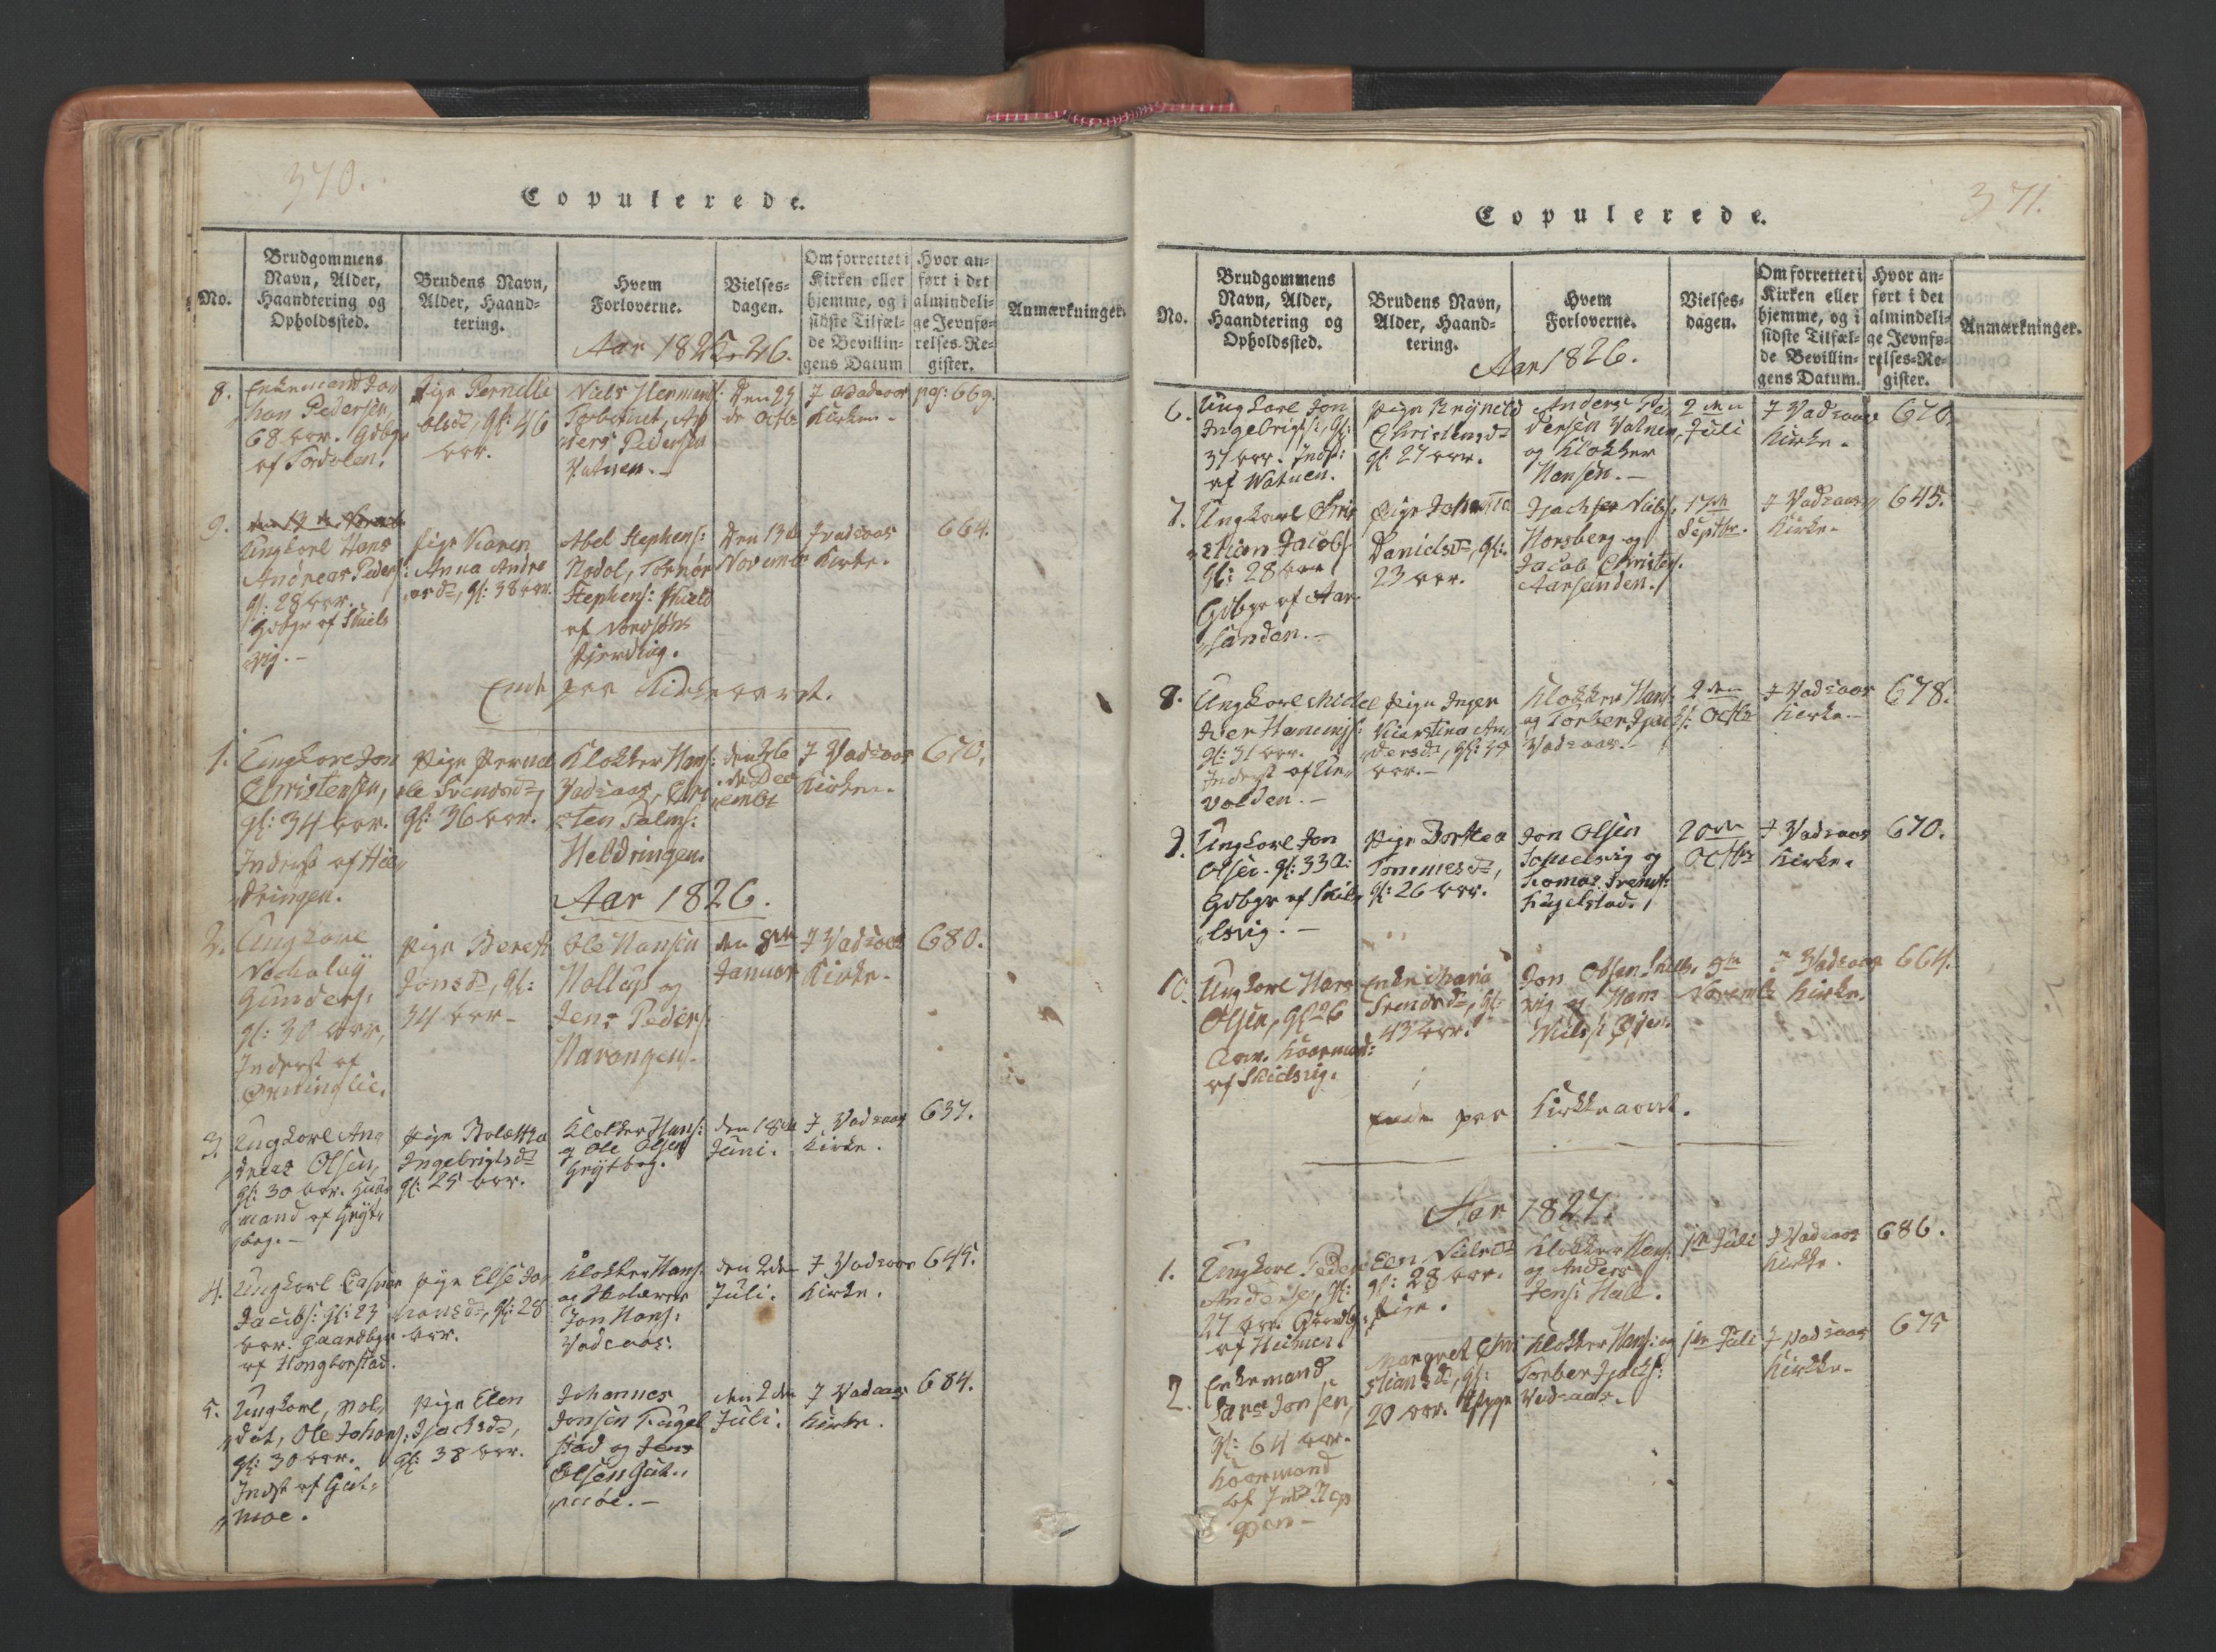 370.
Copulerede.
No.
Brudgommens
Navn, Alder,
Haandtering og
Opholdssted.
Brudens Navn,
Alder, Haand-
tering.
Hvem
Forloverne.
Vielses-
dagen.
Om forrettet i
Kirken eller
hjemme, og i
sidste Tilfæl-
de Bevillin-
gens Datum
Hvor an-
ført i det
almindeli-
ge Jevnfø-
relses-Re-
gister.
Anmærkninger.
Aar 1825-26.
8.
Enkemand Jo-
han Pedersen,
68 aar. Gdbgr
af
Pige Pernille
Olsd., gl: 46
aar.
Niels Hemmens:
Torbornet, An
ders Pedersen
Vatnen.
Den 23
de Octb
J Vadsoos
Kirken
pag: 669.
9.
Ungkarl Hans
Andreas Peders:
gl: 28 aar.
Gdbgr af Skiels
vig.-
Pige Karen
Anna Andre
asd., gl: 38 aar.
Abel Stephens:
Nodol,
Stephens:
af
Fjerding.
Den 13de
November
J Vadsoos
Kirke.
664.
Ende paa Kirkeaaret.
1.
Ungkarl Jon
Christensen,
gl: 34 aar.
Inderst af Hel,,
dringen.
Pige Pernel
le Svendsd.,
gl: 36 aar.
Klokker Hans:
Vadsoos, Chri
sten Palms:
Heldringen.
den 26
de De
cembr
J Vadsoos
Kirken.
670.
Aar 1826.
2.
Ungkarl
Nicholay
Gunders:
gl: 30 aar,
Inderst af
Pige Bereth
Jonsd., gl:
34 aar-
Ole Hansen
Hollup og
Jens Peders:
Navongen.
den 8de
Januar
J Vadsoos
Kirke.
680.
3.
Ungkarl An,,
dreas Olsen,
gl: 30 aar. Huus
mand af Gryt,,
bag.-
Pige Boletha
Ingebrigtsd.
gl: 25 aar.
Klokker Hans:
og Ole Olsen
Grytbag.
den 18de
Juni.
J Vadsoos
Kirke.
637.
4.
Ungkarl Caspar
Jacobs: gl: 23
aar. Gaardbgr
af Hongborstad.
Pige Else Jo,
hansd., gl: 28
aar.
Klokker Hans:
og
Jon Hans:
Vadsoos.
den 2den
Juli.
J Vadsoos
Kirke.
645.
5.
Ungkarl, Sol,,
dat, Ole Johans:
gl: 30 aar.
Indst af Gul,,
moe.
Pige Elen
Isachsd.,
gl: 38 aar.
Johannes
Jonsen Kugel
stad og Jens
Olsen Gul,,
moe.-
den 2den
Juli.
J Vadsoos
Kirke.
684.
371.
Copulerede.
No.
Brudgommens
Navn, Alder,
Haandtering og
Opholdssted.
Brudens Navn,
Alder, Haand-
tering.
Hvem
Forloverne.
Vielses-
dagen.
Om forrettet i
Kirken eller
hjemme, og i
sidste Tilfæl-
de Bevillin-
gens Datum.
Hvor an-
ført i det
almindeli-
ge Jevnfø-
relses-Re-
gister.
Anmærkninger.
Aar 1826.
6.
Ungkarl Jon
Ingebrigts:, gl:
37 aar. Indst:
af Watnen.
Pige
Christensd.
gl: 27 aar.
Anders Pe,
dersen Vatnen,
og Klokker
Hansen.-
2den
Juli
J Vadsoos
Kirke.
670.
7.
Ungkarl Chri
stian Jacobs:
gl: 28 aar
Gdbgr af Aar
sanden.-
Pige Johanna
Danielsd., gl:
23 aar.
Isachser Niels:
Horsberg og
Jacob Christens:
Aarsanden.
17de
Septbr.
J Vadsoos
Kirke.
645.
8.
Ungkarl Michel
Iver Hemmings:
gl: 31 aar.
Inderst af
volden.-
Pige Inger
Kirstina An,
dersd., gl: 34
aar.-
Klokker Hans:
og Torber Isachs:
Vadsoos.-
2den
Octbr
J Vadsoos
Kirke.-
678.
9.
Ungkarl Jon
Olsen. gl: 33 a:
Gdbgr af Skiel,
lsvig.-
Pige Dorthea
Tommesd.,
gl: 26 aar.
Jon Olsen
og
Tomas Svends:
Kugelstad.
20de
Octbr
J Vadsoos
Kirke.
670.
10.
Ungkarl Hans
Olsen, gl: 26
aar. Huusmand:
af Skielsvig.
Enke Maria
Svendsd., gl:
43 aar.
Jon Olsen Skiels,
vig og Hans
Niels: Øjen.
5te
Novemb:
J Vadsoos
Kirke.
664.
Ende paa Kirkkeaaret.
Aar 1827.
1.
Ungkarl Peder
Andersen, gl:
27 aar. Gaardbgr
af Heimen.
Elen Nielsd.
gl: 28 aar.
Pige.
Klokker Hans:
og Anders
Jens: Hall.
1ste Juli
J Vadsoos
Kirkke.
686.
2.
Enkemand
Lars Jonsen,
gl: 64 aar.
Huusmand
Margret Chri
stiansd., gl:
20 aar. Pige
Klokker Hans: og
Torber Isachs:
Vadsoos.
1ste Juli
J Vadsoos
Kirkke.
675